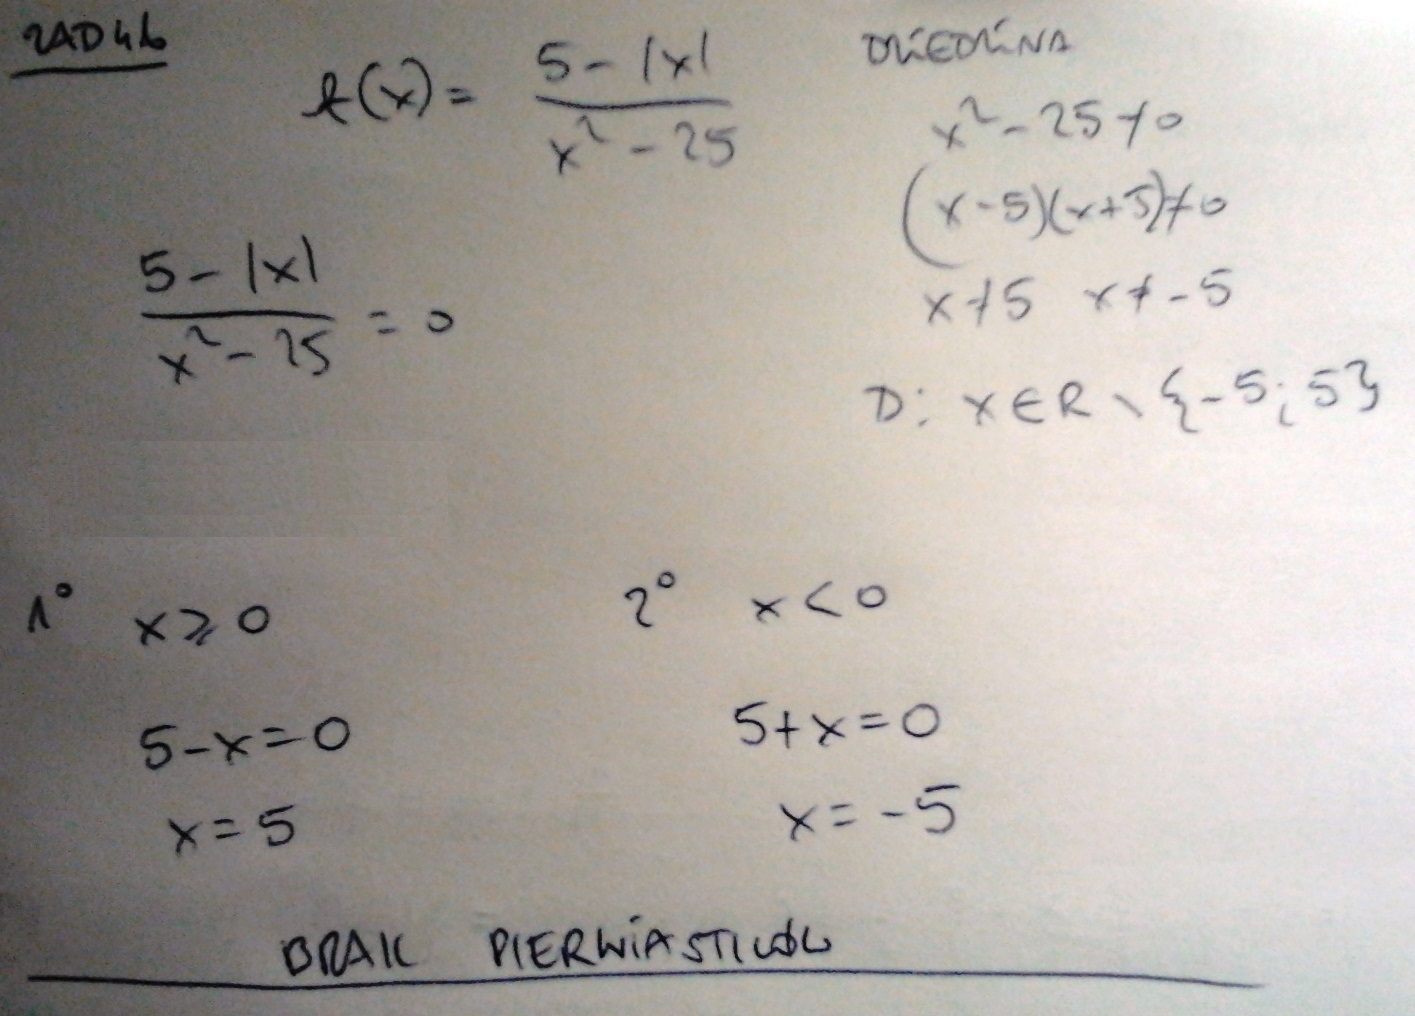 ZAD 4b
f(x) = (5 - |x|) / (x² - 25)
DZIEDZINA
x² - 25 ≠ 0
(x - 5)(x + 5) ≠ 0
x ≠ 5 x ≠ -5
D: x ∈ R \ {-5; 5}
(5 - |x|) / (x² - 25) = 0
1° x ≥ 0
5 - x = 0
x = 5
2° x < 0
5 + x = 0
x = -5
BRAK PIERWIASTKÓW